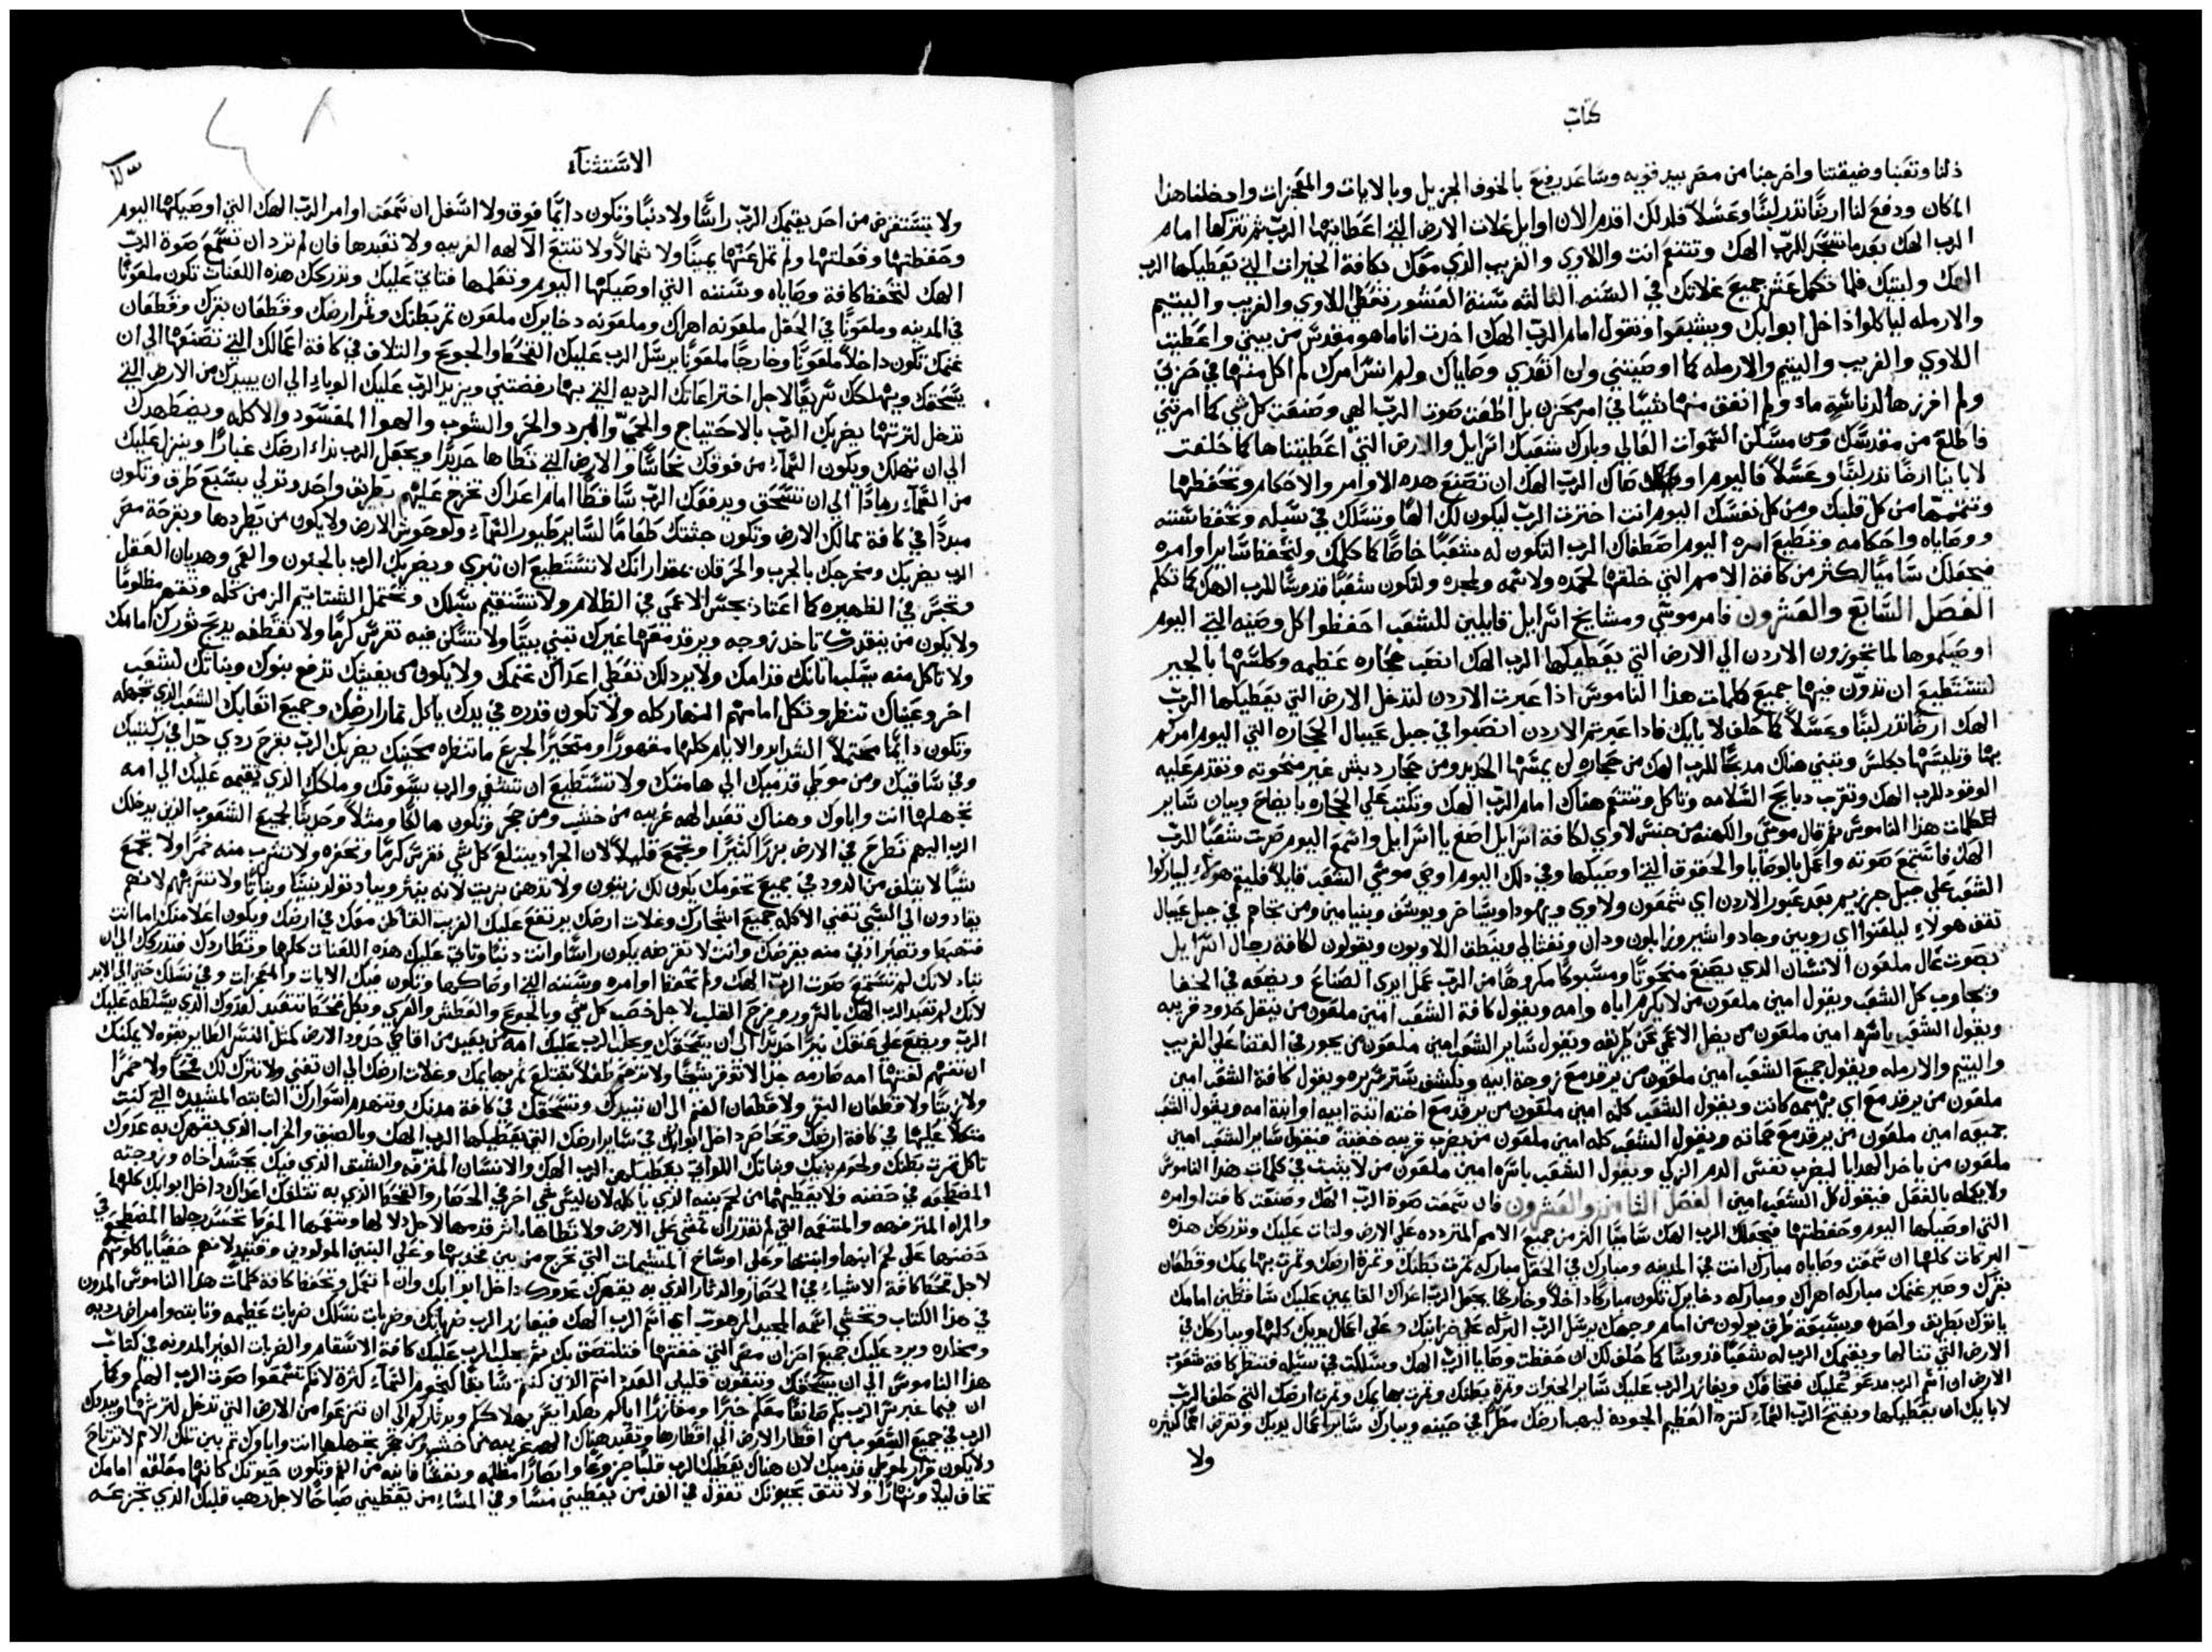 كتاب
ذلنا وتعبنا وضيقتنا واخرجنا من مصر بيد قويه وساعد رفيع بالخوف الجزيل وبالايات والمعجزات وادخلنا هذا
المكان ودفع لنا ارضًا تدر لبنًا وعسلاً فلدلك اقدم الان اوايل غلات الارض التي اعطانيها الرب ثم تتركها امام
الرب الهك بعدما تسجد للرب الهك وتتنعم انت واللاوي والغريب الذي معك بكافة الخيرات التي يعطيكها الرب
الهك ولبيتك فلما تكمل عشر جميع غلاتك في السنه الثالثه سنة العشور تعطي للاوي والغريب واليتيم
والارمله لياكلوا داخل ابوابك ويشبعوا وتقول امام الرب الهك اخدت انا ما هو مقدس من بيتي واعطيت
اللاوي والغريب واليتيم والارمله كما اوصيتني ولن اتعدي وصاياك ولم انس امرك لم اكل منها في حزني
ولم افرزها لدناسة ما ولم انفق منها شيًا في امر محزن بل اطعت صوت الرب الهي وصنعت كل شي كما امرتني
فاطلع من مقدسك ومن مسكن السموات العالي وبارك شعبك اسرايل والارض التي اعطيتناها كما حلفت
لاباينا ارضًا تدر لبنًا وعسلاً فاليوم اوصاك الرب الهك ان تصنع هده الاوامر والاحكام وتحفظها
وتتممها من كل قلبك ومن كل نفسك اليوم انت اخترت الرب ليكون لك الهًا وتسلك في سبيله وتحفظ سننه
ووصاياه واحكامه وتطيع امره اليوم اصطفاك الرب لتكون له شعبًا خاصًا كما كلمك ولتحفظ ساير اوامره
فيجعلك ساميًا اكثر من كافة الامم التي خلقها لحمده ولاسمه ولمجده ولتكون شعبًا قدوسًا للرب الهك كما تكلم
الفصل السابع والعشرون فامر موسي ومشايخ اسرايل قايلين للشعب احفظوا كل وصيه التي اليوم
اوصيكموها لما تجوزون الاردن الي الارض التي يعطيكها الرب الهك انصب حجاره عظيمه وكلسها بالجير
لتستطيع ان تدوّن فيها جميع كلمات هذا الناموس اذا عبرت الاردن لتدخل الارض التي يعطيكها الرب
الهك ارضًا تدر لبنًا وعسلاً كما حلف لابايك فادا عبرتم الاردن انصبوا في جبل عيبال الحجاره التي اليوم امركم
بها وتلبسها بكلس وتبني هناك مدبحًا للرب الهك من حجاره لن يمسها الحديد ومن حجار دبش غير منحوته وتقدم عليه
الوقود للرب الهك وتقرب دبايح السلامه وتاكل وتتنعم هناك امام الرب الهك وتكتب علي الحجاره بايضاح وبيان ساير
كلمات هذا الناموس ثم قال موسي والكهنة من جنس لاوي لكافة اسرايل اصغ يا اسرايل واسمع اليوم صرت شعبًا للرب
الهك فاستمع صوته واعمل بالوصايا والحقوق التي اوصيكها وفي دلك اليوم اوصي موسي الشعب قايلاً فليقم هولاء ليباركوا
الشعب علي جبل جرزيم بعد عبور الاردن اي شمعون ولاوي ويهودا ويساخر ويوسف وبنيامين ومن تجاههم في جبل عيبال
تقف هولاء ليلعنوا اي روبين وجاد واشير وزابلون ودان ونفثالي وينطق اللاويون ويقولون لكافة رجال اسرايل
بصوت عال ملعون الانسان الدي يصنع منحوتًا ومسبوكًا مكروهًا من الرب عمل ايدي الصناع ويضعه في الخفا
ويجاوب كل الشعب ويقول امين ملعون من لا يكرم اباه وامه ويقول كافة الشعب امين ملعون من ينقل حدود قريبه
ويقول الشعب باسره امين ملعون من يضل الاعمي عن طريقه ويقول ساير الشعب امين ملعون من يجور في القضا علي الغريب
واليتيم والارمله ويقول جميع الشعب امين ملعون من يرقد مع زوجة ابيه ويكشف ستر سريره ويقول كافة الشعب امين
ملعون من يرقد مع اي بهيمه كانت ويقول الشعب كله امين ملعون من يرقد مع اخته ابنة ابيه او ابنة امه ويقول الشعب
جميعه امين ملعون من يرقد مع حماته ويقول الشعب كله امين ملعون من يضرب قريبه خفيةً فيقول ساير الشعب امين
ملعون من ياخد الهدايا ليضرب نفس الدم الزكي ويقول الشعب باسره امين ملعون من لا يثبت في كلمات هدا الناموس
ولا يكمله بالفعل فيقول كل الشعب امين الفصل الثامن والعشرون فان سمعت صوة الرب الهك وصنعت كافت اوامره
التي اوصيكها اليوم وحفظتها فيجعلك الرب الهك ساميًا اكثر من جميع الامم المتردده علي الارض ولتات عليك وتدركك هذه
البركات كلها ان سمعت وصاياه مبارك انت في المدينه ومبارك في الحقل مباركه تمرت بطنك وتمرة ارضك وتمرت بهايمك وقطعان
بقرك وصير غنمك مباركه اهراك ومباركه دخايرك تكون مباركًا داخلاً وخارجًا يجعل الرب اعداك القايمين عليك ساقطين امامك
ياتوك بطريق واحده وبسبعة طرق يولون من امام وجهك يرسل الرب البركه علي خزاينك وعلي اعمال يديك كلها ويباركك في
الارض التي تنالها ويقيمك الرب له شعبًا قدوسًا كما حلف لك ان حفظت وصايا الرب الهك وسلكت في سبيله فتنظر كافة شعوب
الارض ان اسم الرب مدعو عليك فتخافك ويغازر الرب عليك ساير الخيرات وثمرة بطنك وتمرت بهايمك وثمرت ارضك التي حلف الرب
لابايك ان يعطيكها ويفتح الرب السماء كنزه العظيم الجوده ليهب ارضك مطرًا في حينه ويبارك ساير اعمال يديك وتقرض اممًا كثيره
ولا
الاستثناء
ولا تستقرض من احد يقيمك الرب راسًا ولا دنبًا وتكون دايمًا فوق ولا اسفل ان سمعت اوامر الرب الهك التي اوصيكها اليوم
وحفظتها وفعلتها ولم تمل عنها يمينًا ولا شمالاً ولا تتبع الالهه الغريبه ولا تعبدها فان لم ترد ان تسمع صوة الرب
الهك لتحفظ كافة وصاياه وسننه التي اوصيكها اليوم وتعملها فتاتي عليك وتدركك هذه اللعنات تكون ملعونًا
في المدينه وملعونًا في الحقل ملعونه اهراك وملعونه دخايرك ملعون تمر بطنك وثمر ارضك وقطعان بقرك وقطعان
غنمك تكون داخلاً ملعونًا وخارجًا ملعونًا يرسل الرب عليك القحط والجوع والتلاف في كافة اعمالك التي تصنعها الي ان
يسحقك ويهلكك سريعًا لاجل اختراعاتك الرديه التي بها رفضتني ويزيد الرب عليك الوباء الي ان يبيدك من الارض التي
تدخل لترتها يضربك الرب بالاحتياج والحمي والبرد والحر والشوب والهوا المفسود والاكله ويضطهدك
الي ان تهلك ويكون السماء من فوقك نحاسًا والارض التي تطاها حديدًا ويجعل الرب نداء ارضك غبارًا وينزل عليك
من السماء رمادًا الي ان تنسحق ويدفعك الرب ساقطًا امام اعداك تخرج عليهم بطريق واحد وتولي بسبع طرق وتكون
مبددًا في كافة ممالك الارض وتكون جثتك طعامًا لساير طيور السماء ولوحوش الارض ولا يكون من يطردها وبقرحة مصر
الرب يضربك ومخرجك بالجرب والحرقان بمقدار انك لا تستطيع ان تبري ويضربك الرب بالجنون والعمي وهديان العقل
وتجس في الظهيره كما اعتاد يجس الاعمي في الظلام ولا تستقيم سبلك وتحتمل الشتايم الزمن كله وتقهر مظلومًا
ولا يكون من ينقدك تاخد زوجه ويرقد معها غيرك تبني بيتًا ولا تسكن فيه تغرس كرمًا ولا تقطفه يدبح ثورك امامك
ولا تاكل منه يسلب اتانك قدامك ولا يرد لك تعطي اعداك غنمك ولا يكون من يغيثك تدفع بنوك وبناتك لشعب
اخر وعيناك تنظر وتكل امامهم النهار كله ولا تكون قدره في يدك ياكل تمار ارضك وجميع اتعابك الشعب الذي تجهله
وتكون دايمًا محتملاً الشدايد والايام كلها مقهورًا ومتحيرًا لجزع ما تنظره عينيك يضربك الرب بقرح ردي جدًا في ركبتيك
وفي ساقيك ومن موطي قدميك الي هامتك ولا تستطيع ان تشفي والرب يسوقك وملكك الذي تقيمه عليك الي امه
تجهلها انت واباوك وهناك تعبد الهه غريبه من خشب ومن حجر وتكون هالكًا ومثلاً وحديثًا لجميع الشعوب الدين يدخلك
الرب اليهم تطرح في الارض بزرًا كثيرًا وتجمع قليلاً لان الجراد يبتلع كل شي تغرس كرمًا وتحفره ولا تشرب منه خمرًا ولا تجمع
شيًا لا يتلف من الدود في جميع تخومك يكون لك زيتون ولا تدهن بزيت لانه ينثر ويباد تولد بنينًا وبناتًا ولا تتنزه بهم لانهم
يقادون الي السبي تفني الاكله جميع اشجارك وغلات ارضك يرتفع عليك الغريب القاطن معك في ارضك ويكون اعلا منك اما انت
فتهبط وتصير ادني منه يقرضك وانت لا تقرضه يكون راسًا وانت دنبًا وتاتي عليك هذه اللعنات كلها وتطاردك فتدركك الي ان
تباد لانك لم تسمع صوت الرب الهك ولم تحفظ اوامره وسننه التي اوصاكها وتكون فيك الايات والمعجزات وفي نسلك حتي الي الابد
لانك لم تعبد الرب الهك بالسرور وفرح القلب لاجل خصب كل شي وبالجوع والعطش والعري وبكل قحط تتعبد لعدوك الذي يسلطه عليك
الرب ويضع علي عنقك نيرًا حديدًا الي ان يسحقك ويجلب الرب عليك امه من بعيد من اقاصي حدود الارض كمثل النسر الطاير بقوه لا يمكنك
ان تفهم لغتها امه صارمه جدًا لا توقر شيخًا ولا ترحم طفلاً تقتلع تمر بهايمك وغلات ارضك الي ان تفني ولا تترك لك قمحًا ولا خمرًا
ولا زيتًا ولا قطعان البقر ولا قطعان الغنم الي ان تبيدك وتسحقك في كافة مدنك وتنهدم اسوارك الثابته المشيده التي كنت
متكلاً عليها في كافة ارضك وتحاصر داخل ابوابك في ساير ارضك التي يعطيكها الرب الهك وبالضيق والخراب الذي يقهرك به عدوك
تاكل تمرت بطنك ولحوم بنيك وبناتك اللواتي يعطيكهن الرب الهك والانسان المترفه والشبق الذي فيك يحسد اخاه وزوجته
المضطجعه في حضنه فلا يعطيهما من لحم بنيه الذي ياكله لان ليس شي اخر في الحصار والقحط الذي به تتلفك اعداك داخل ابوابك كلها
والمراه المترفهه والمتنعمه التي لم تقدر ان تمشي علي الارض ولا تطاها باثر قدمها لاجل دلالها ونعمتها المفرطه تحسد رجلها المضطجع في
حضنها علي لحم ابنها وابنتها وعلي اوساخ المشيمات التي تخرج من بين فخديها وعلي البنين المولودين وقتيد لانهم خفيًا ياكلونهم
لاجل قحط كافة الاشياء في الحصار والدثار الذي به يقهرك عدوك داخل ابوابك وان لم تعمل وتحفظ كافة كلمات هدا الناموس المدون
في هذا الكتاب وتخشي اسمه المجيد المرهوب اي اسم الرب الهك فيغازر الرب ضرباتك وضربات نسلك ضربات عظيمه وثابته وامراض رديه
ومخلده ويرد عليك جميع احزان مصر التي خفتها فتلتصق بك ثم يجلب الرب عليك كافة الاسقام والضربات الغير المدونه في كتاب
هذا الناموس الي ان يسحقك وتبقون قليلي العدد انتم الذين كنتم سابقًا كنجوم السماء كثرة لانكم لم تسمعوا صوت الرب الهكم وكما
الرب في جميع الشعوب من اقطار الارض الي اقطارها وتعبد هناك الهه غريبه من خشب ومن حجر تجهلها انت واباوك ثم بين تلك الامم لا ترتاح
ولا يكون قرار لموطي قدميك لان هناك يعطيك الرب قلبًا جزوعًا وابصارًا مظلمه ونفسًا فانيه من الغم وتكون حيوتك كانها معلقه امامك
تخاف ليلاً ونهارًا ولا تتق بحيوتك تقول في الغد من يعطيني مساً وفي المساء من يعطيني صباحًا لاجل رهب قلبك الذي تجزعه